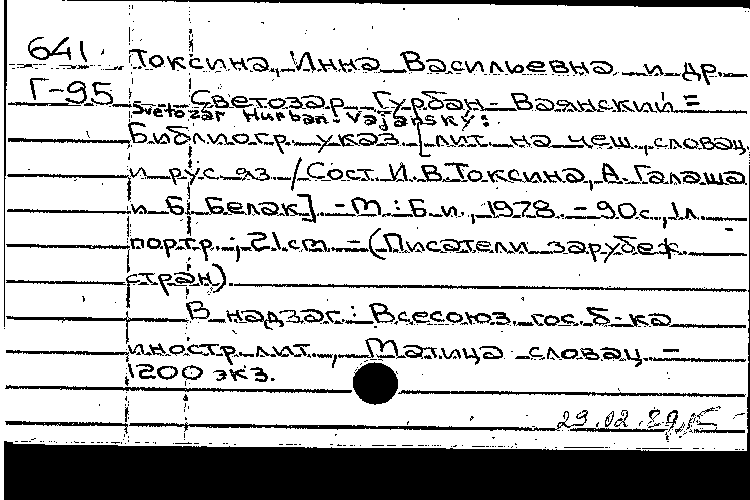 641
Токсина, Инна Васильевна и др.
Г-95
Светозар Гурбан-Ваянский =
Svetozar Hurban-Vajanský:
Библиогр. указ. [лит. на чеш., словац.
и рус. яз. / Сост. И.В.Токсина, А. Галаша
и Б. Белак] - М.: Б.и., 1978. - 90с., 1л.
портр.; 21см. - (Писатели зарубеж.
стран)
В надзаг.: Всесоюз. гос. б-ка
иностр. лит., Матица словац. -
1200 экз.
29.02.